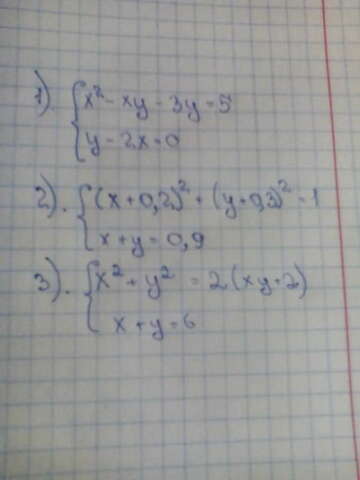 1). { x² - xy - 3y = 5
y - 2x = 0
2). { (x + 0,2)² + (y + 0,3)² = 1
x + y = 0,9
3). { x² + y² = 2(xy + 2)
x + y = 6